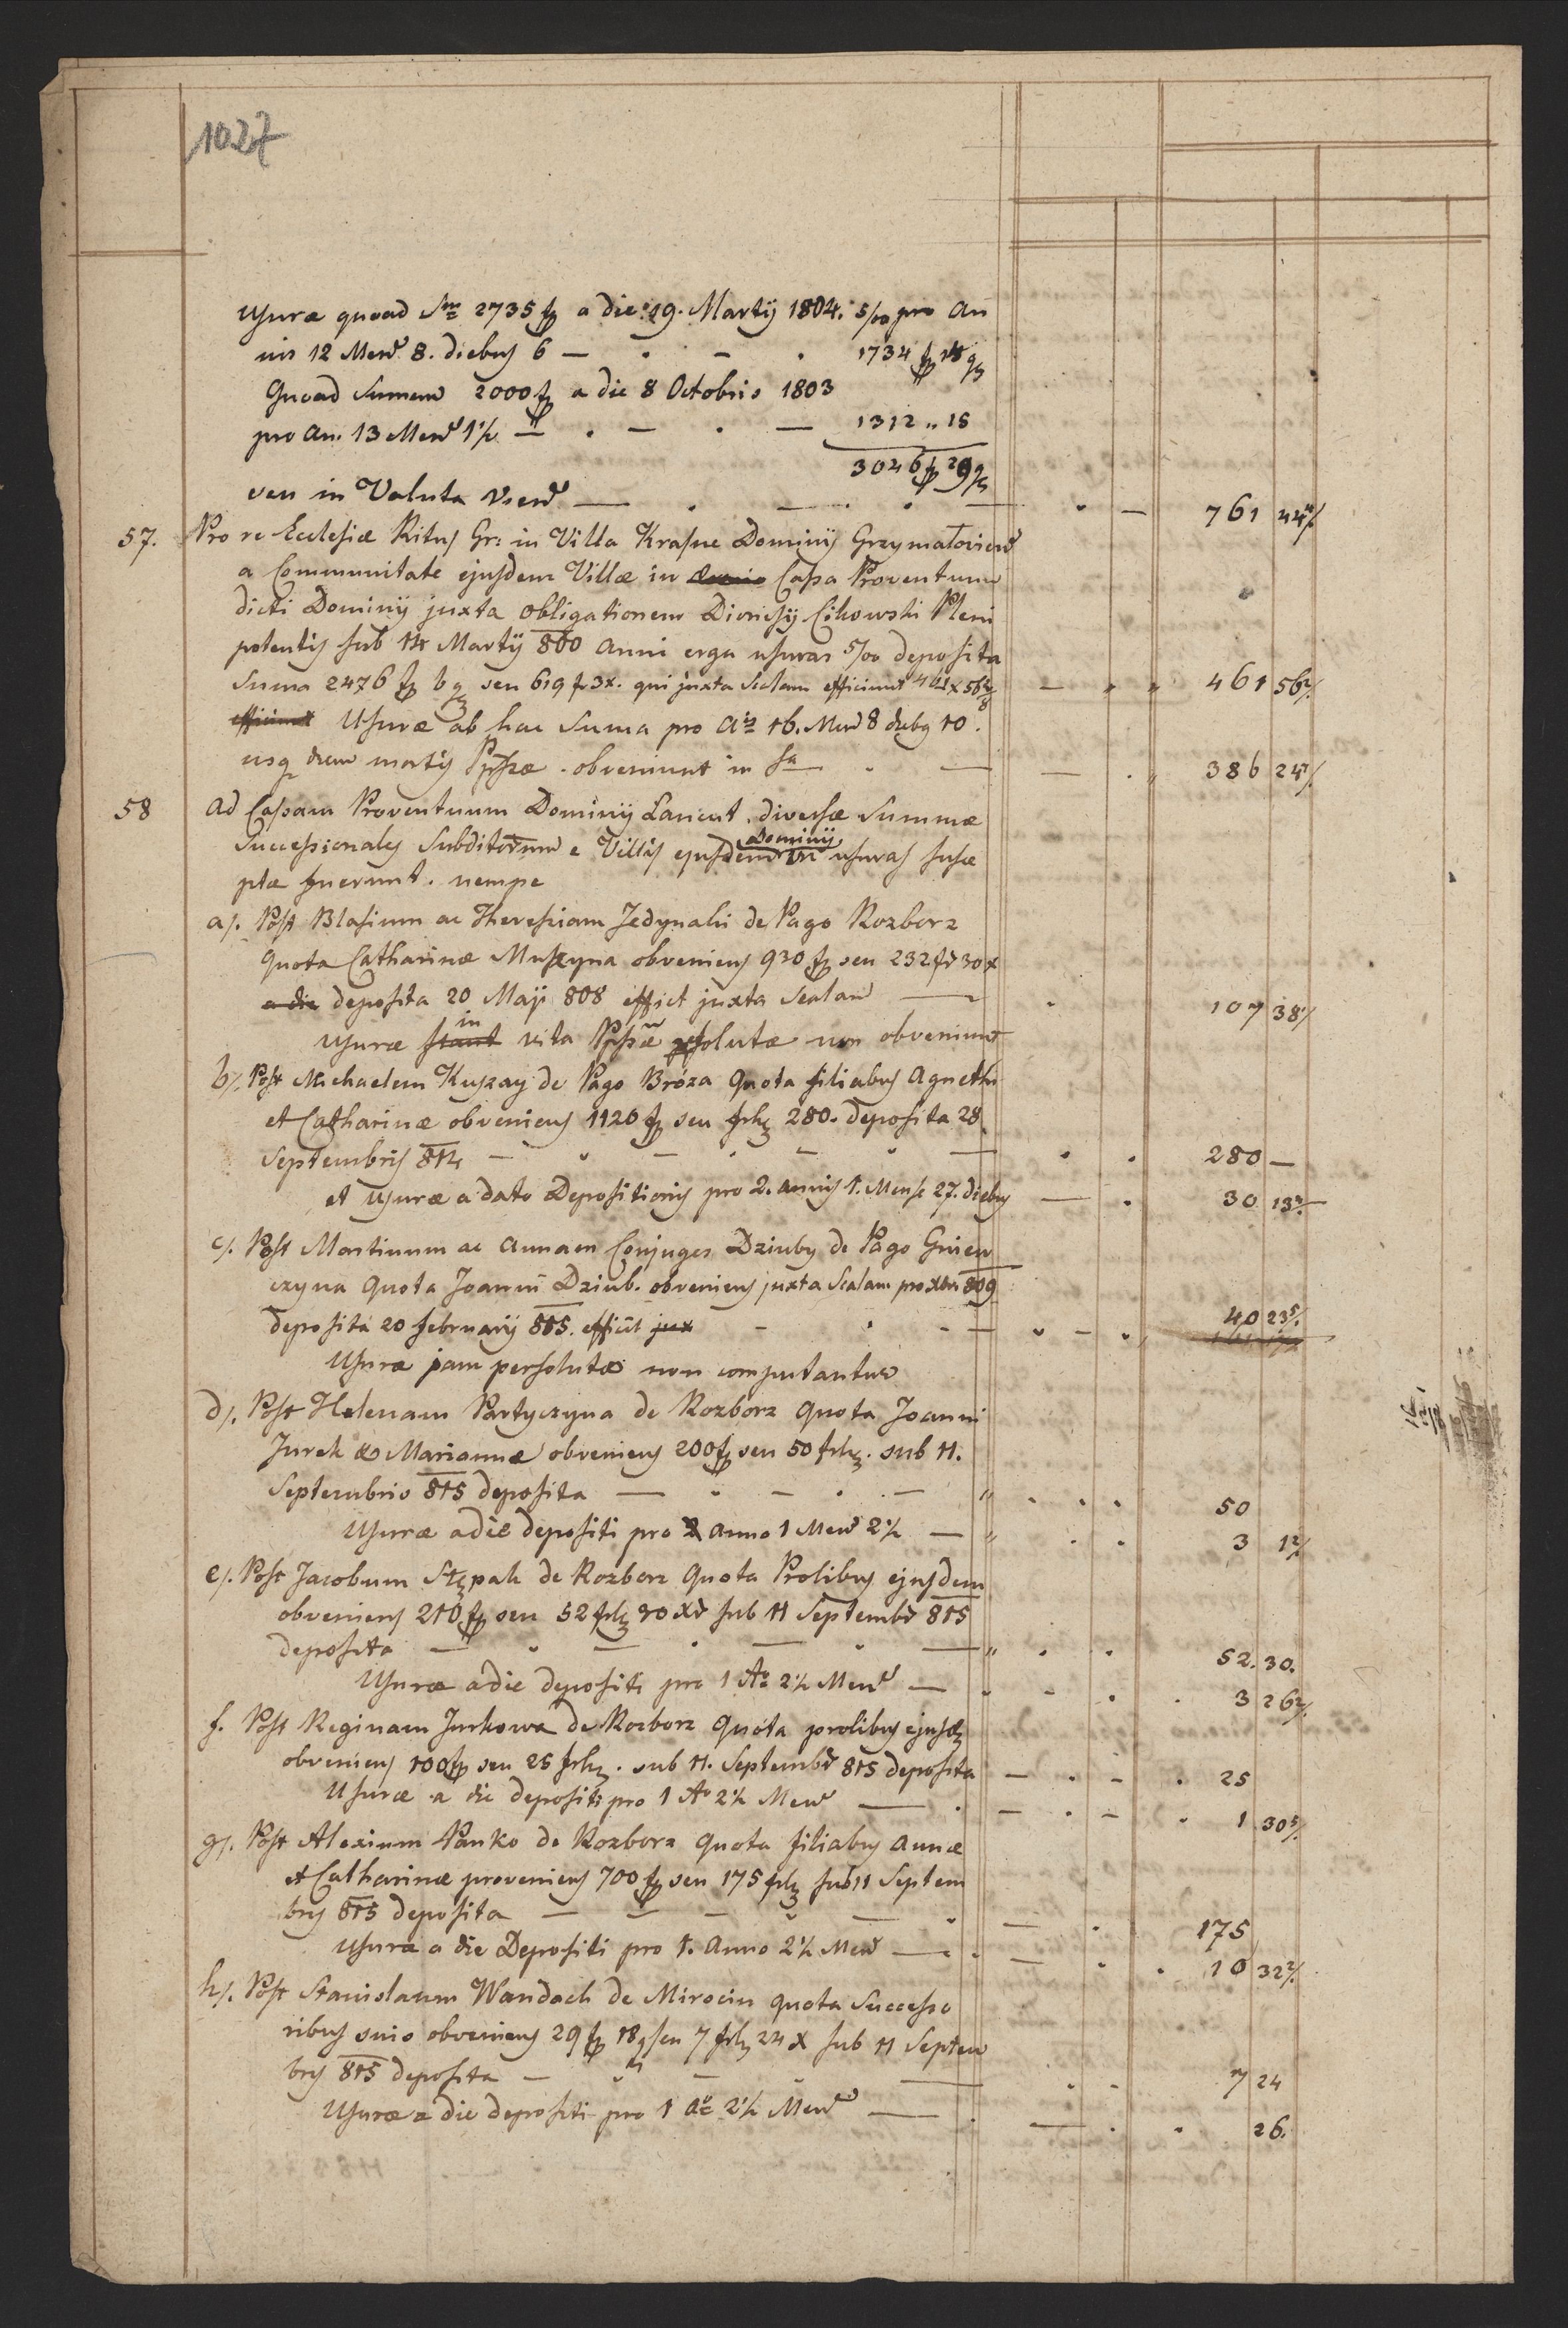 1027
Usuræ quoad Sm̅ 2735 fp a die 19. Martÿ 1804. 5/00 pro An
nis 12 Mens. 8. diebus 6 — . — . 1734 fp 14 g
Quoad Sumem 2000 fp a die 8 Octobris 1803
pro An. 13 Mens 1½ — . — . — 1312 „ 15
3046 fp 29 g
seu in Valuta Vien — . — . — . — 761 44
57. Pro re Ecclesiæ Ritus Gr: in Villa Krasne Dominÿ Grzymałovien
a Communitate ejusdem Villæ in Cassa Proventuum
dicti Dominÿ juxta obligationem Dionisÿ Cikowski Pleni
potentis sub 14 Martÿ 800 anni erga usuras 5/00 deposita
Suma 2476 fp 6 g seu 619 fr 3 x. qui juxta Scalam efficiunt 461 x 56 — „ „ 461 56
efficiunt Usuræ ab hac Suma pro Ais 16. Mens 8 diebg 10.
usq diem mortis Ppssæ. obveniunt in Sa — . — — . „ 386 24
58 Ad Cassam Proventuum Dominÿ Lancut. diversæ Summæ
Successionales Subditorum e Villis ejusdem Dominÿ in usuras susce
ptæ fuerunt. nempe
a/. Post Blasium ac Theressiam Jedynaki de Pago Rozborz
quota Catharinæ Muszyna obveniens 930 fp seu 232 fr 30 x
a die deposita 20 Maji 808 effict juxta Scalam — . 107 38
Usuræ in vita Ppssæ solutæ non obveniunt
b/. Post Michaelem Kuszay de Pago Bróza quota filiabus Agnethi
et Catharinæ obveniens 1120 fp seu frh 280. deposita 28
Septembris 814 — . — . — . — . . 280 —
et Usuræ a dato Depositionis pro 2. annis 1. Mense 27. diebus — . 30 13
c/. Post Martinum ac Annam Conjuges Dziuby de Pago Gniew
czyna quota Joanni Dziub. obveniens juxta Scalam pro Xbri 809
deposita 20 februarÿ 815. efficit jux — . — . — . 40 23
Usuræ jam persolutæ non computantur
d/. Post Helenam Partyczyna de Rozborz quota Joanni
Jurek & Mariannæ obveniens 200 fp seu 50 frh. sub 11.
Septembris 815 deposita — . — . — „ . . . 50
Usuræ a die depositi pro anno 1 Mens 2½ — „ . . 3 1
e/. Post Jacobum Stępak de Rozborz quota Prolibus ejusdem
obveniens 210 fp seu 52 frh 30 xr sub 11 Septembr 815
deposita — . — . — . — „ . . 52. 30.
Usuræ a die depositi pro 1 Ao 2½ Mens — . — . . 3 26
f. Post Reginam Jurkowa de Rozborz quota prolibus ejusd
obveniens 100 fp seu 25 frh. sub 11. Septembr 815 deposita — . — . 25
Usuræ a die depositi pro 1 Ao 2½ Mens — . — . — . 1 30
g/. Post Alexium Panko de Rozborz quota filiabus Annæ
et Catharinæ proveniens 700 fp seu 175 frh sub 11 Septem
bris 815 deposita — . — . — . — . 175
Usura a die Depositi pro 1. Anno 2½ Mens — . — . . 10 32
h/. Post Stanislaum Wandach de Mirocin quota Successo
ribus suis obveniens 29 fp 18 g seu 7 frh 24 x sub 11 Septem
bris 815 deposita — . — . — . . 7 24
Usuræ a die depositi pro 1 Ao 2½ Mens — . — . . 26.